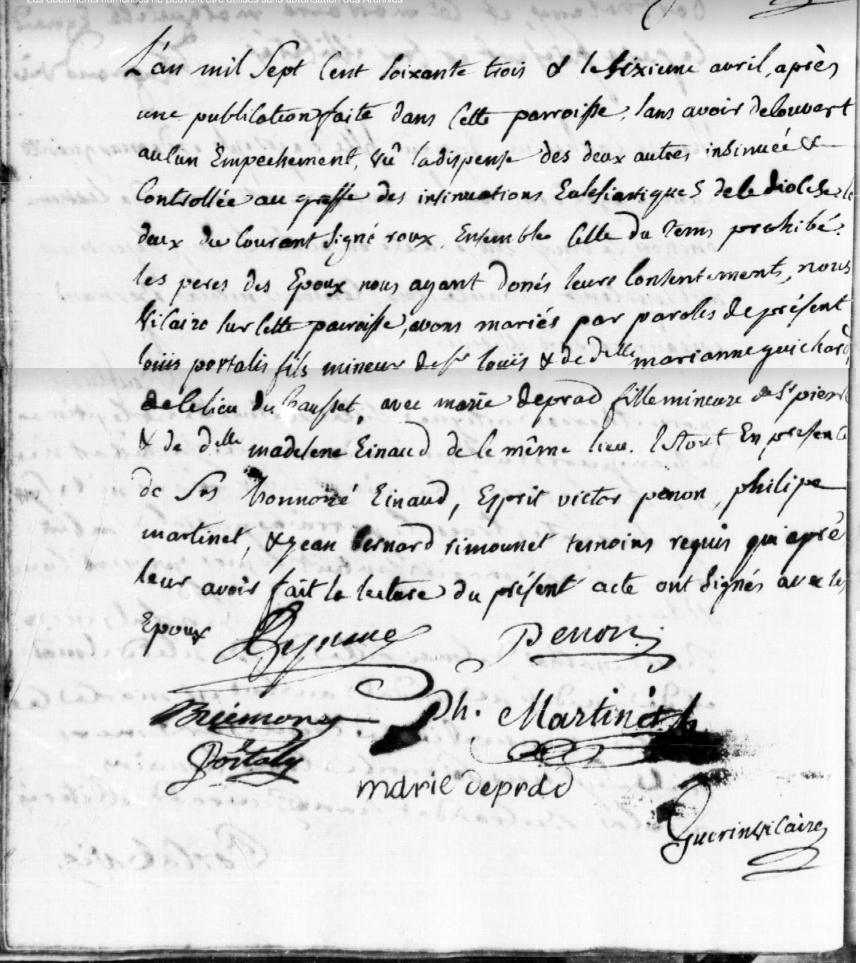 Les documents numérisés ne peuvent être utilisés sans autorisation des Archives
L'an mil Sept Cent soixante trois & le sixieme avril, après
une publication faite dans Cette parroisse, sans avoir decouvert
aucun Empechement, vû la dispense des deux autres insinuée &
Controllée au greffe des insinuations Eclesiastiques de le diocèse le
deux du Courant signé roux. Ensemble Celle du Tems prohibé.
les peres des Epoux nous ayant donés leurs Consentements, nous
vicaire sur Cette parroisse, avons mariés par paroles de présent
louis portalis fils mineur de sr louis & de dlle marianne guichard
de ce lieu du bausset, avec marie deprad fille mineure de Sr pierre
& de dlle madelene Einaud de le même lieu. le tout En presence
de Srs honnoré Einaud, Esprit victor penon, philipe
martinet, & jean bernard simounet temoins requis qui après
leur avoir fait la lecture du présent acte ont signés avec les
Epoux
Penon
Ph. Martinet
Portaly
marie deprad
Guerin vicaire